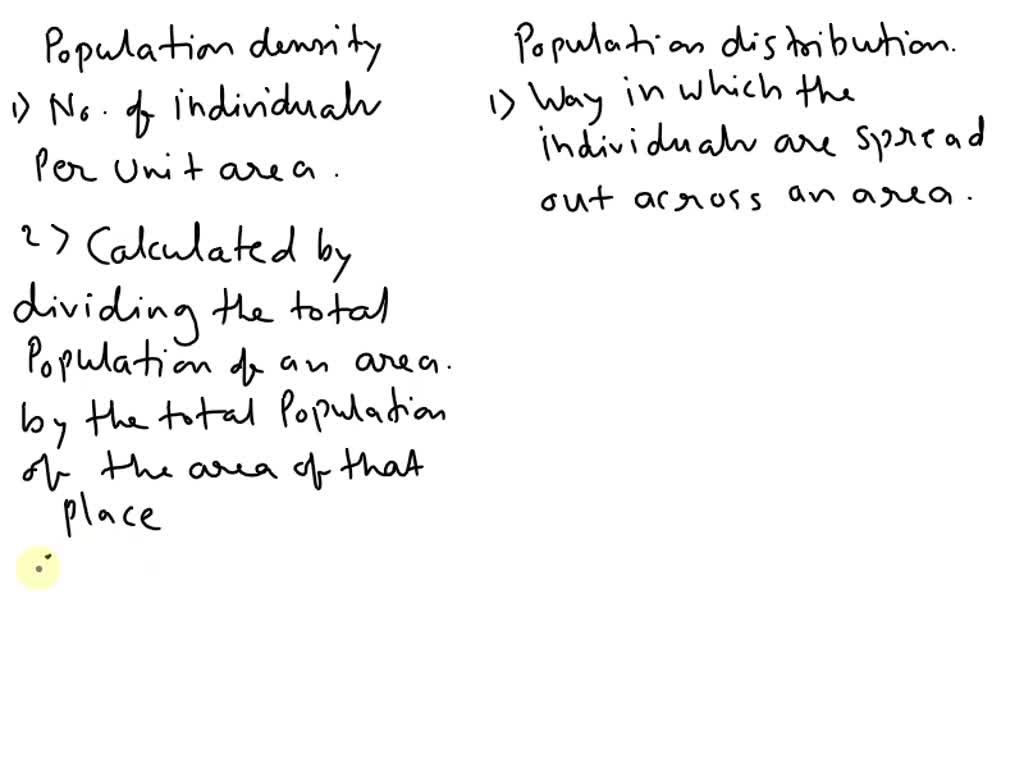 Population density
1) No. of individuals
Per unit area.
2) Calculated by
dividing the total
Population of an area.
by the total Population
of the area of that
place
Population distribution.
1) Way in which the
individuals are spread
out across an area.